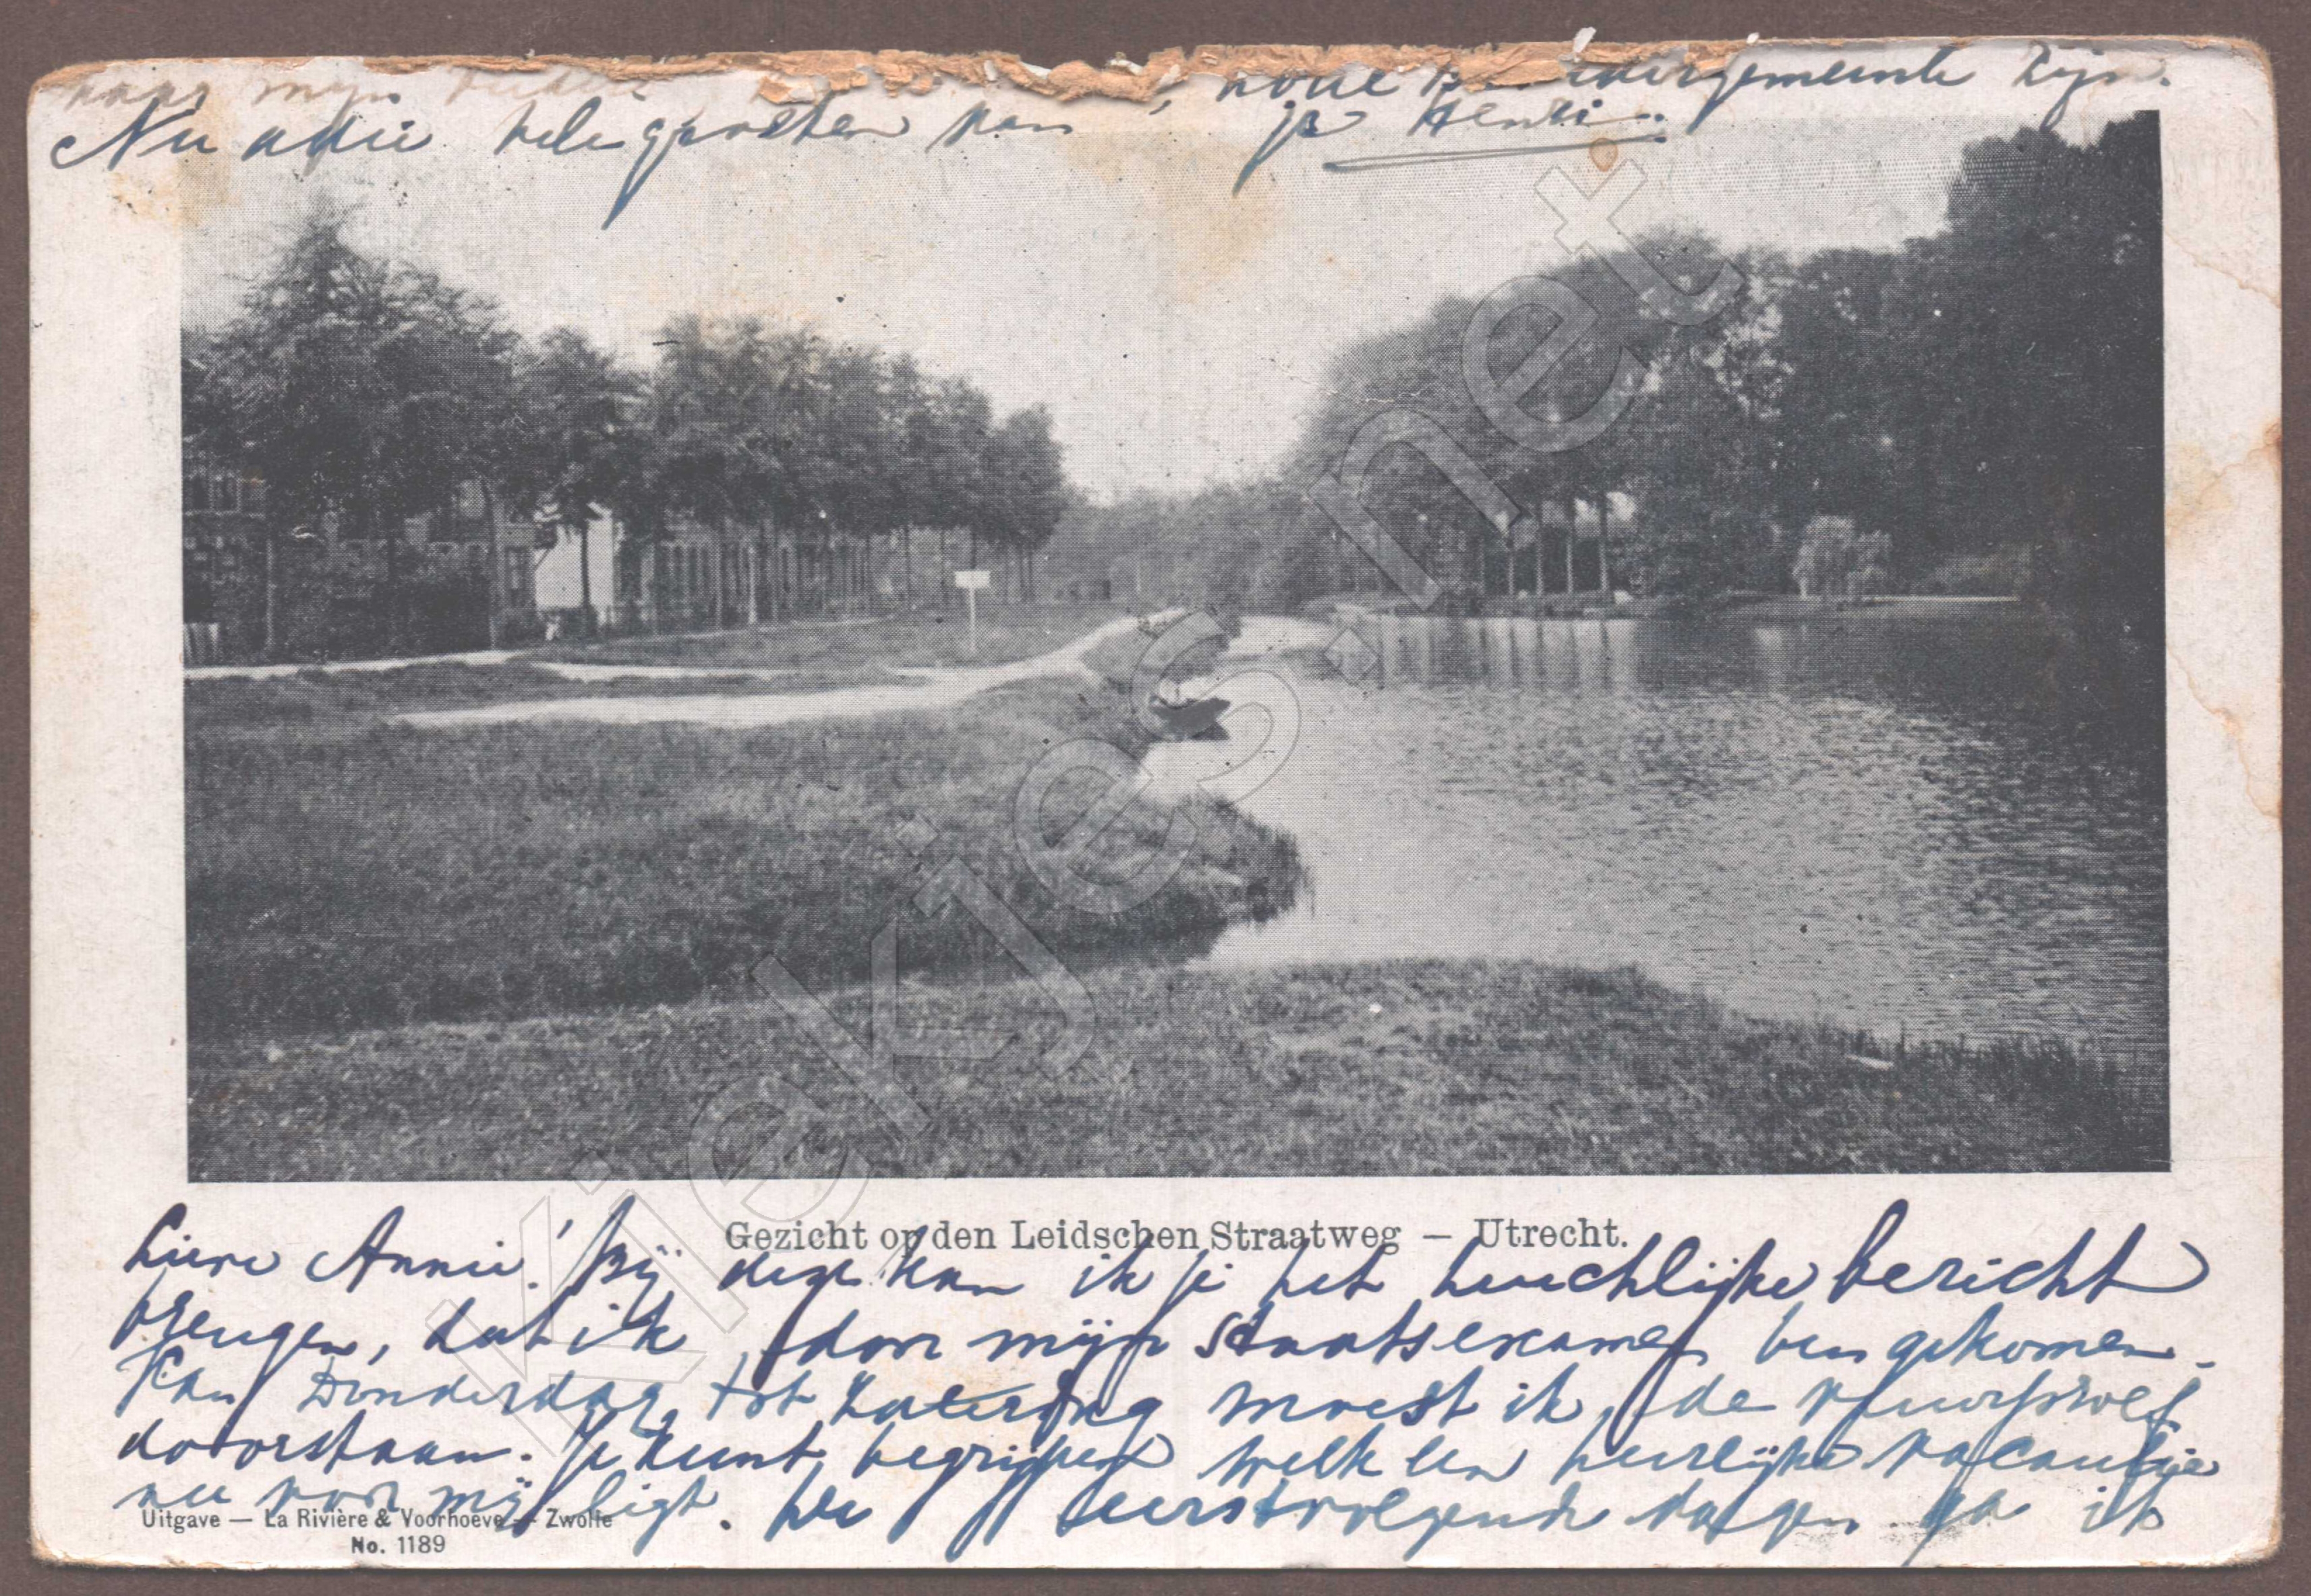 naar mijn
dergemeente zijn.
Nu adie vele groeten van je Henri.
Gezicht op den Leidschen Straatweg — Utrecht.
Lieve Annie! Bij deze kan ik je het heuchlijke bericht
brengen, dat ik door mijn staatsexamen ben gekomen.
Van Donderdag tot Zaterdag moest ik de vuurproef
doorstaan. Je kunt begrijpen welk een heerlijke vacantie
nu voor mij ligt. De eerstvolgende dagen ga ik
Uitgave — La Rivière & Voorhoeve — Zwolle
No. 1189
kiekjes.net